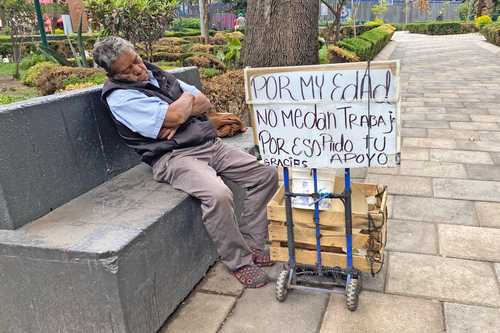 POR MY EDAD
NO MEDAN TRABAJ
POR ESO PIDO TU
GRACIAS APOYO